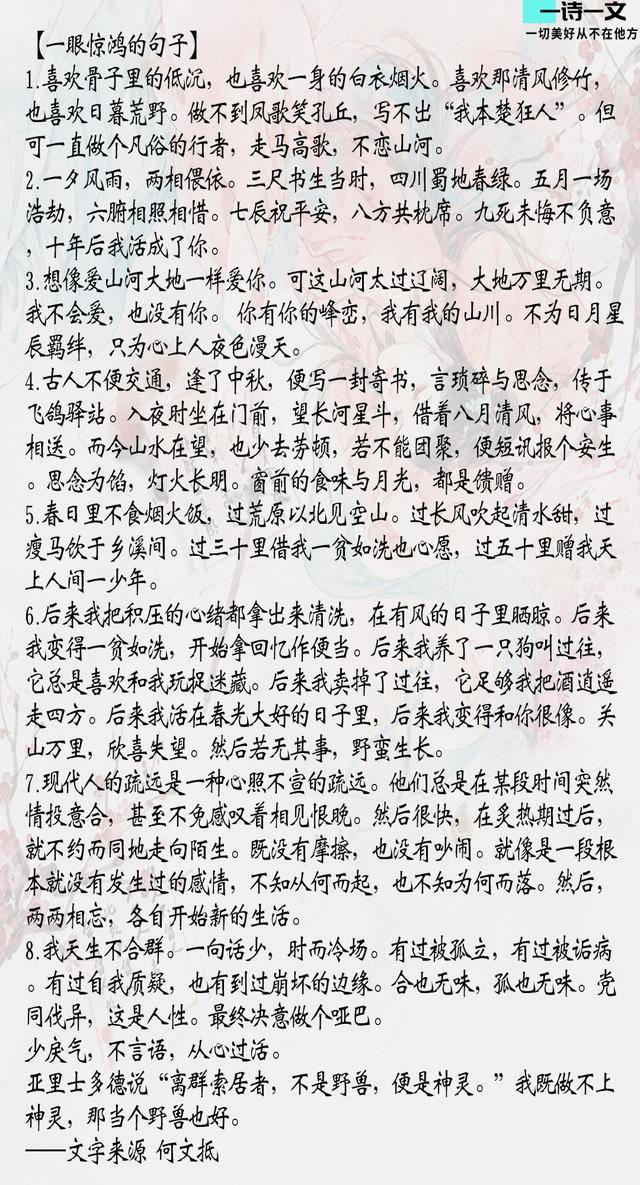 一诗一文
一切美好从不在他方
【一眼惊鸿的句子】
1.喜欢骨子里的低沉，也喜欢一身的白衣烟火。喜欢那清风修竹，
也喜欢日暮荒野。做不到凤歌笑孔丘，写不出“我本楚狂人”。但
可一直做个凡俗的行者，走马高歌，不恋山河。
2.一夕风雨，两相偎依。三尺书生当时，四川蜀地春绿。五月一场
浩劫，六腑相照相惜。七辰祝平安，八方共枕席。九死未悔不负意
，十年后我活成了你。
3.想像爱山河大地一样爱你。可这山河太过辽阔，大地万里无期。
我不会爱，也没有你。 你有你的峰峦，我有我的山川。不为日月星
辰羁绊，只为心上人夜色漫天。
4.古人不便交通，逢了中秋，便写一封寄书，言琐碎与思念，传于
飞鸽驿站。入夜时坐在门前，望长河星斗，借着八月清风，将心事
相送。而今山水在望，也少去劳顿，若不能团聚，便短讯报个安生
。思念为馅，灯火长明。窗前的食味与月光，都是馈赠。
5.春日里不食烟火饭，过荒原以北见空山。过长风吹起清水甜，过
瘦马饮于乡溪间。过三十里借我一贫如洗也心愿，过五十里赠我天
上人间一少年。
6.后来我把积压的心绪都拿出来清洗，在有风的日子里晒晾。后来
我变得一贫如洗，开始拿回忆作便当。后来我养了一只狗叫过往，
它总是喜欢和我玩捉迷藏。后来我卖掉了过往，它足够我把酒逍遥
走四方。后来我活在春光大好的日子里，后来我变得和你很像。关
山万里，欣喜失望。然后若无其事，野蛮生长。
7.现代人的疏远是一种心照不宣的疏远。他们总是在某段时间突然
情投意合，甚至不免感叹着相见恨晚。然后很快，在炙热期过后，
就不约而同地走向陌生。既没有摩擦，也没有吵闹。就像是一段根
本就没有发生过的感情，不知从何而起，也不知为何而落。然后，
两两相忘，各自开始新的生活。
8.我天生不合群。一向话少，时而冷场。有过被孤立，有过被诟病
。有过自我质疑，也有到过崩坏的边缘。合也无味，孤也无味。党
同伐异，这是人性。最终决意做个哑巴。
少戾气，不言语，从心过活。
亚里士多德说“离群索居者，不是野兽，便是神灵。”我既做不上
神灵，那当个野兽也好。
——文字来源 何文抵